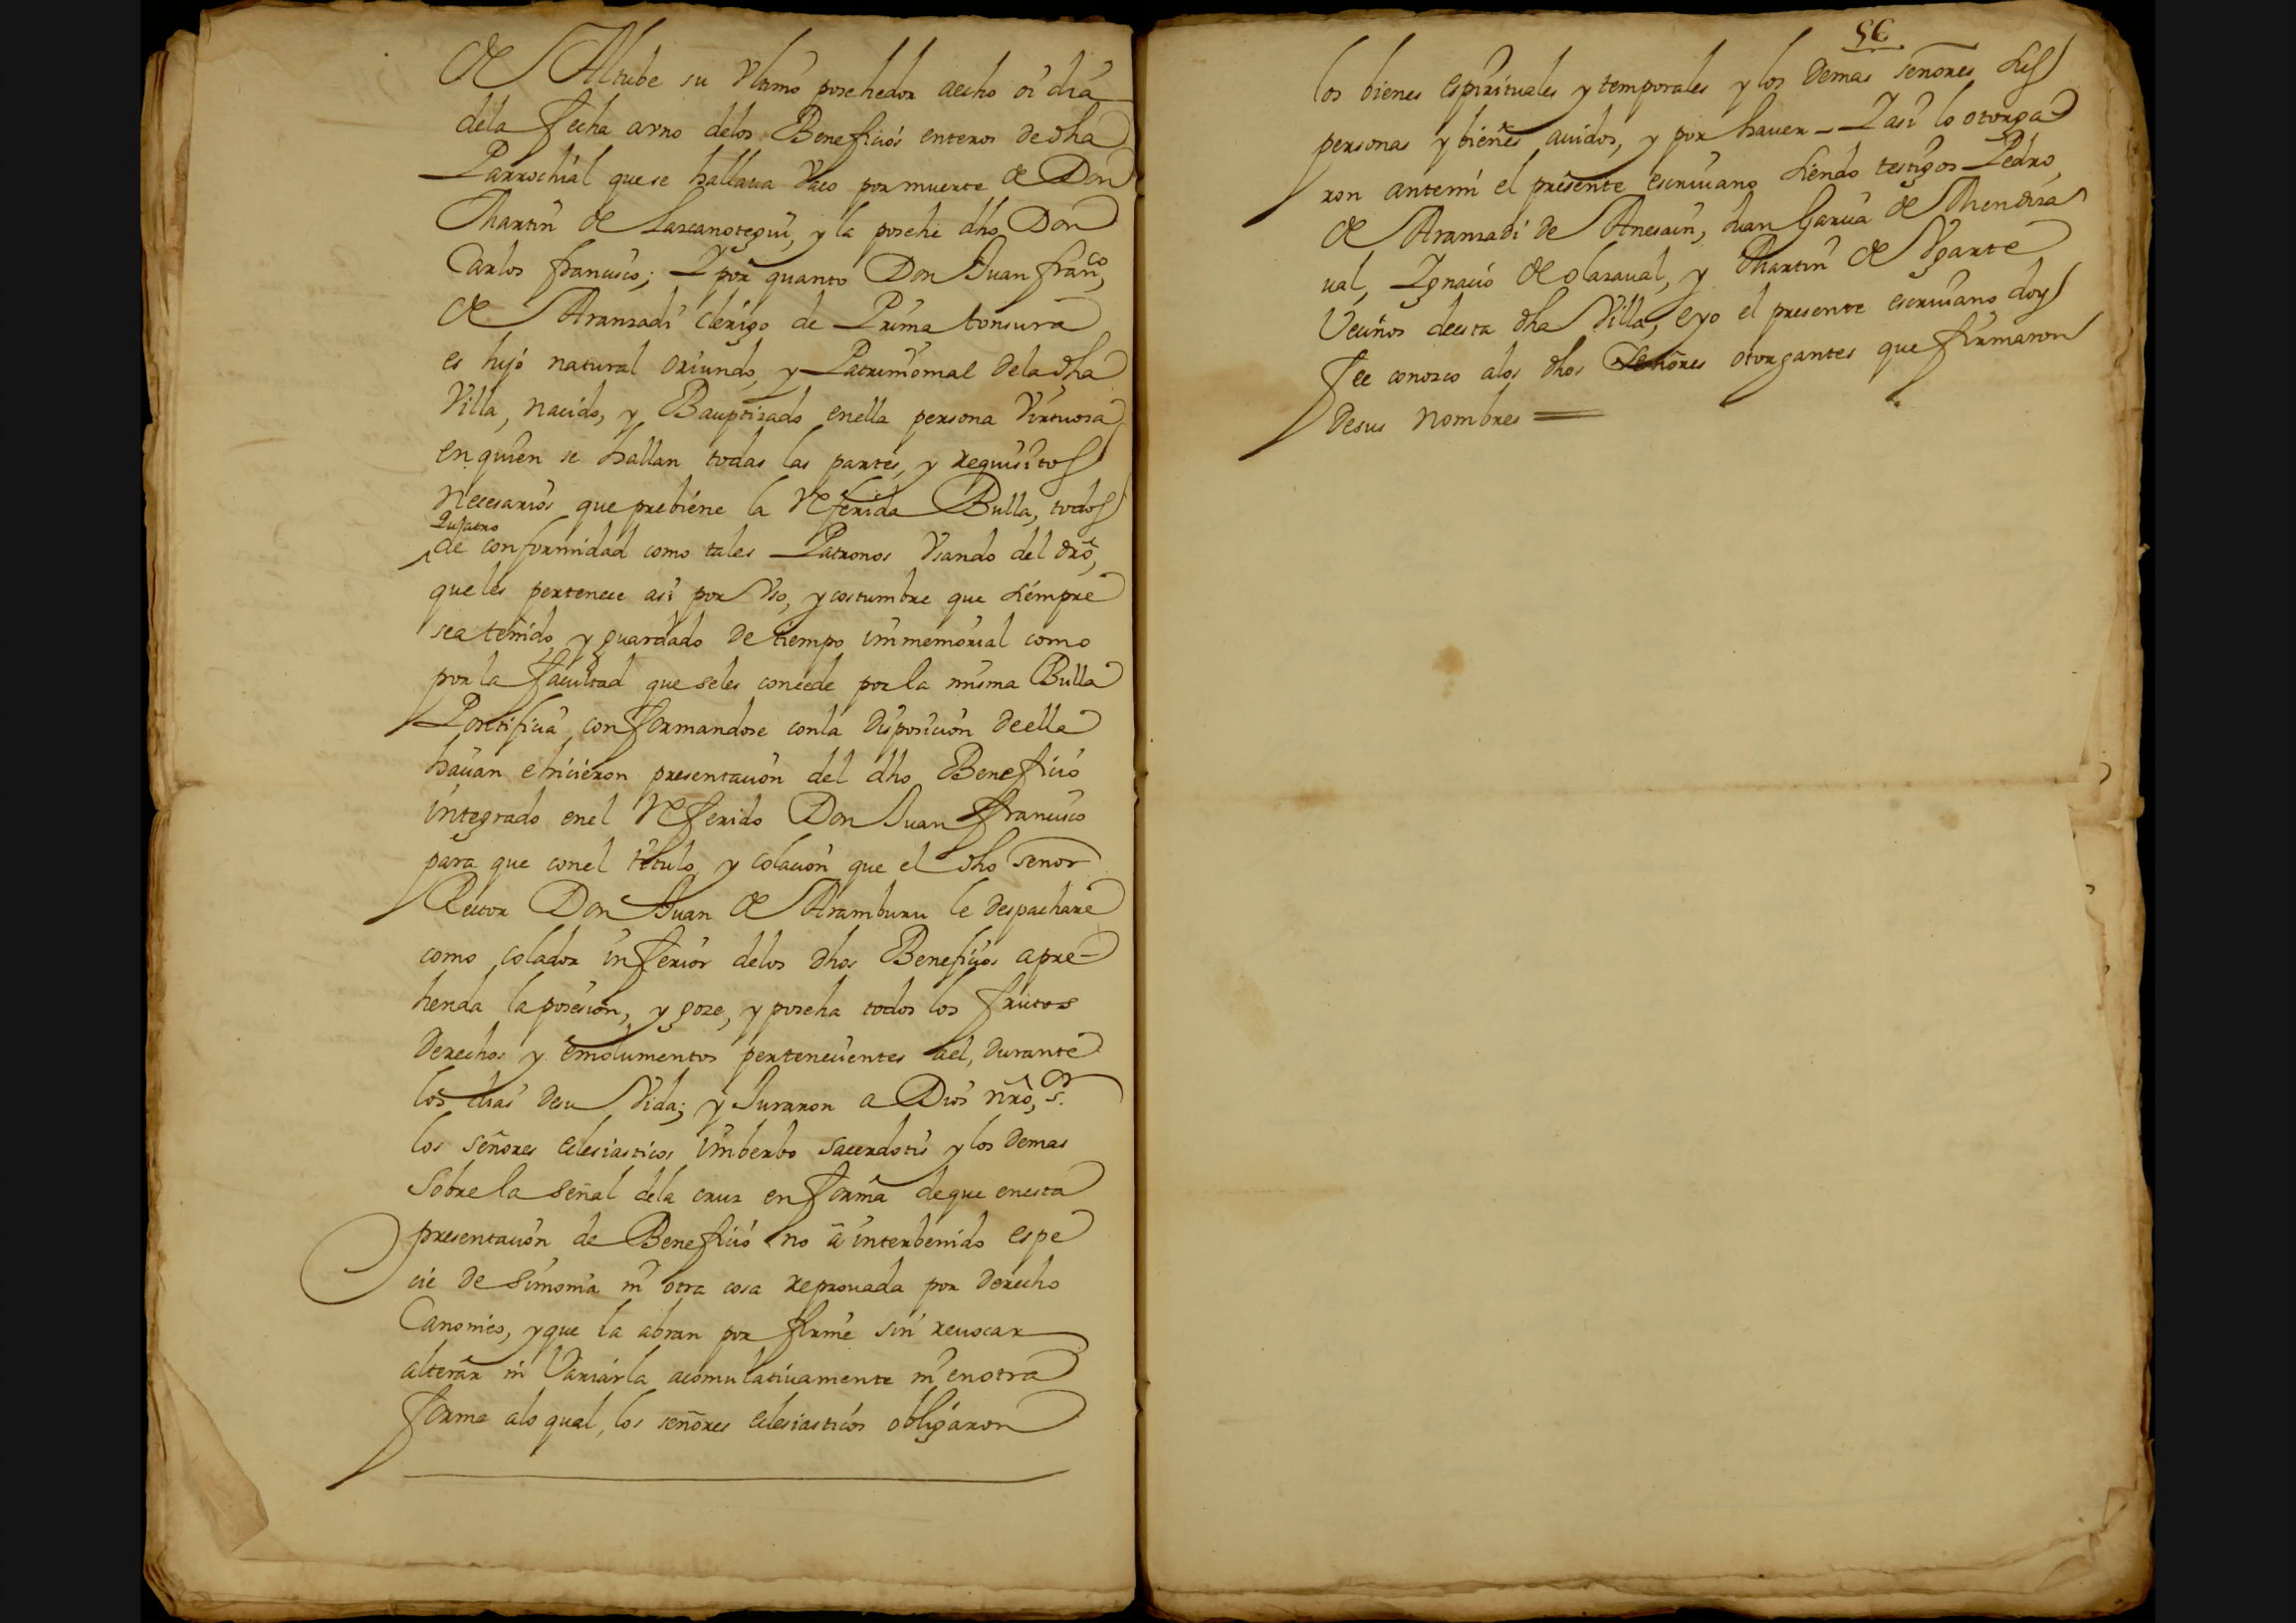 de Altube su vltimo posehedor aecho oi dia
dela fecha a vno delos Beneficios enteros de dha
Parrochial que se hallaua vaco por muerte de Don
Martin de Lascanotegui, y la posehe dho Don
Carlos francisco; Y por quanto Don Juan franco,
de Aransadi clerigo de Prima tonsura
es hijo natural oriundo, y Patrimonial dela dha
Villa, nacido, y Bauptisado enella persona virtuosa
en quien se hallan todas las partes, y requisitos
necesarios que prebiene la Referida Bulla, todos
Quatro
de conformidad como tales Patronos vsando del dro,
que les pertenece asi por vso, y costumbre que siempre
sea tenido, y guardado de tiempo immemorial como
por la facultad que seles concede por la misma Bulla
Pontificia conformandose conla disposicion deella
hacian ehicieron presentacion del dho Beneficio
integrado enel Referido Don Juan francisco
para que conel titulo, y colacion que el dho señor
Rector Don Juan de Aramburu le despachare
como colador inferior delos dhos Beneficios apre-
henda la posesion, y goze, y poseha todos los fructos
derechos y emolumentos pertenecientes ael, durante
los dias desu vida; y Juraron a Dios nro, sr.
los señores eclesiasticos imberbo sacerdotis y los demas
sobre la señal dela cruz en forma de que enesta
presentacion de Beneficio no â interbenido espe
cie de simonia ni otra cosa reprouada por derecho
Canonico, y que la abran por firme sin reuocar
alterar ni variarla acomulatiuamente ni enotra
forma alo qual, los señores eclesiasticos obligaron
56
los bienes espirituales y temporales y los demas señores sus
personas y bienes auidos, y por hauer - Y asi lo otorga
ron antemi el presente escriuano siendo testigos Pedro
de Aransadi de Anesain, Juan Garcia de Mendiza
ual, Ygnacio de olasaual, y Martin de Vgarte
Vecinos deesta dha Villa, eyo el presente escriuano doy
fee conosco alos dhos señores otorgantes que firmaron
desus nombres =